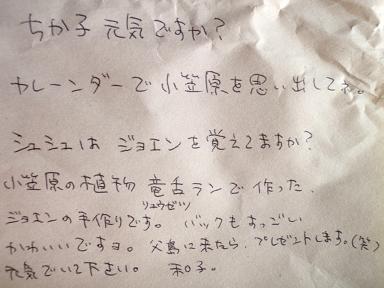 ちか子 元気ですか?
カレーンダーで 小笠原を思い出してネ。
シュシュは ジョエンを覚えてますか?
小笠原の植物 竜舌ランで作った、
リュウゼツ
ジョエンの手作りです。 バックもすっごい
かわいいですヨ。 父島に来たら、プレゼントします。(笑)
元気でいて下さい。 和子。